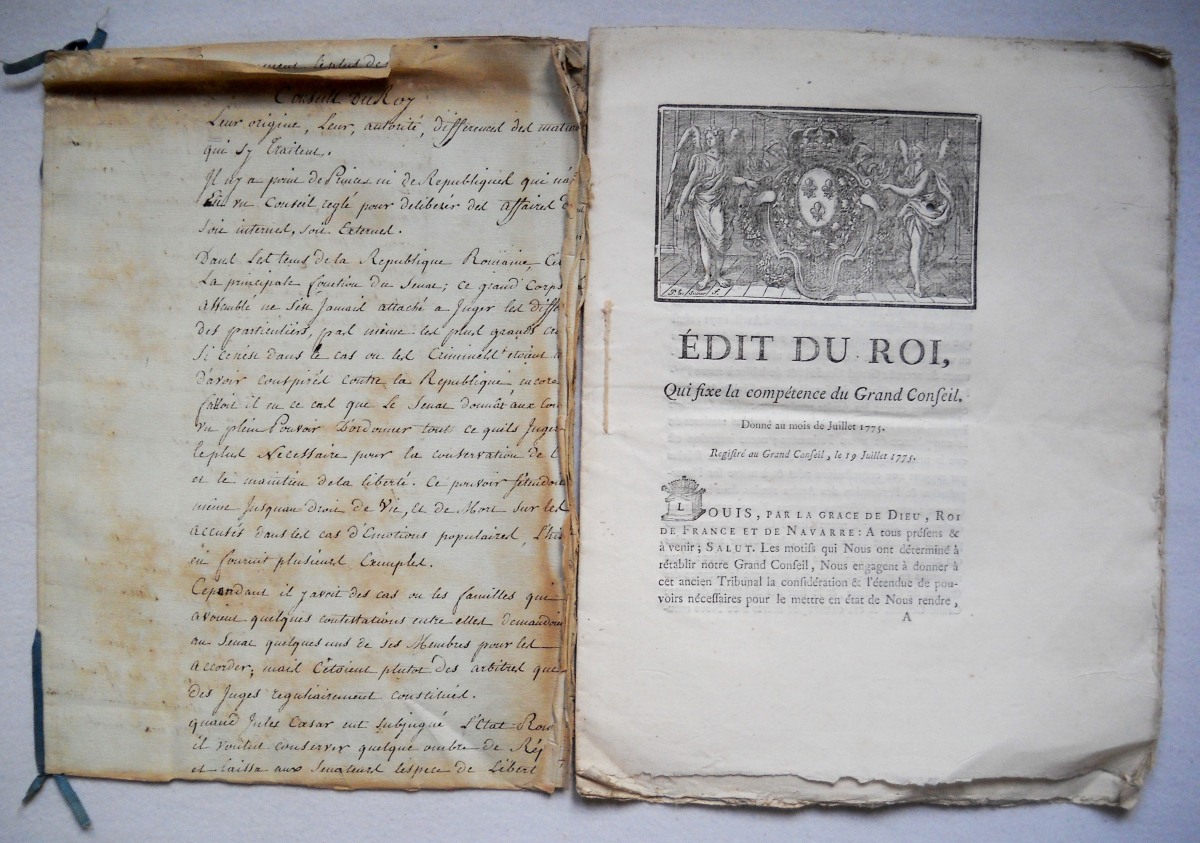 leplus des
Conseil Du Roy
Leur origine, Leur, autorité, differences des matier
qui sy Traitent.
Il ny a point de Princes ni de Republiques qui
un Conseil reglé pour deliberer des affaires
soit internes, soit Externes.
Dans Les tems de la Republique Romaine,
La principale fonction du Senat; ce grand Corps
assemblé ne s'est Jamais attaché a Juger les diffe
des particuliers, pas même les plus grands
Si cenest dans le cas ou les Criminels etoient
D'avoir conspirés contre la Republique encore
falloit il en ce cas que Le Senat donnat aux Con
un plein Pouvoir D'ordonner tout ce quils Juger
le plus Necessaire pour la conservation de l
et le maintien de la liberté. Ce pouvoir s'etendoit
même Jusquau droit de Vie, et de Mort sur les
accusés dans les cas d'Emotions populaires, L'his
en fournit plusieurs Exemples.
Cependant il y avoit des cas ou les familles qui
avoient quelques contestations entre elles demandoien
au Senat quelques uns de ses Membres pour les
accorder; mais C'etoient plutot des arbitres que
des Juges regulierement constitués.
quand Jules Cæsar eut subjugué L'Etat Rom
il voulut conserver quelque ombre de Rép
et laissa aux Senateurs lespece de Libert
ÉDIT DU ROI,
Qui fixe la compétence du Grand Conſeil.
Donné au mois de Juillet 1775.
Regiſtré au Grand Conſeil, le 19 Juillet 1775.
LOUIS, PAR LA GRACE DE DIEU, ROI
DE FRANCE ET DE NAVARRE: A tous préſens &
à venir; SALUT. Les motifs qui Nous ont déterminé à
rétablir notre Grand Conſeil, Nous engagent à donner à
cet ancien Tribunal la conſidération & l'étendue de pou-
voirs néceſſaires pour le mettre en état de Nous rendre,
A